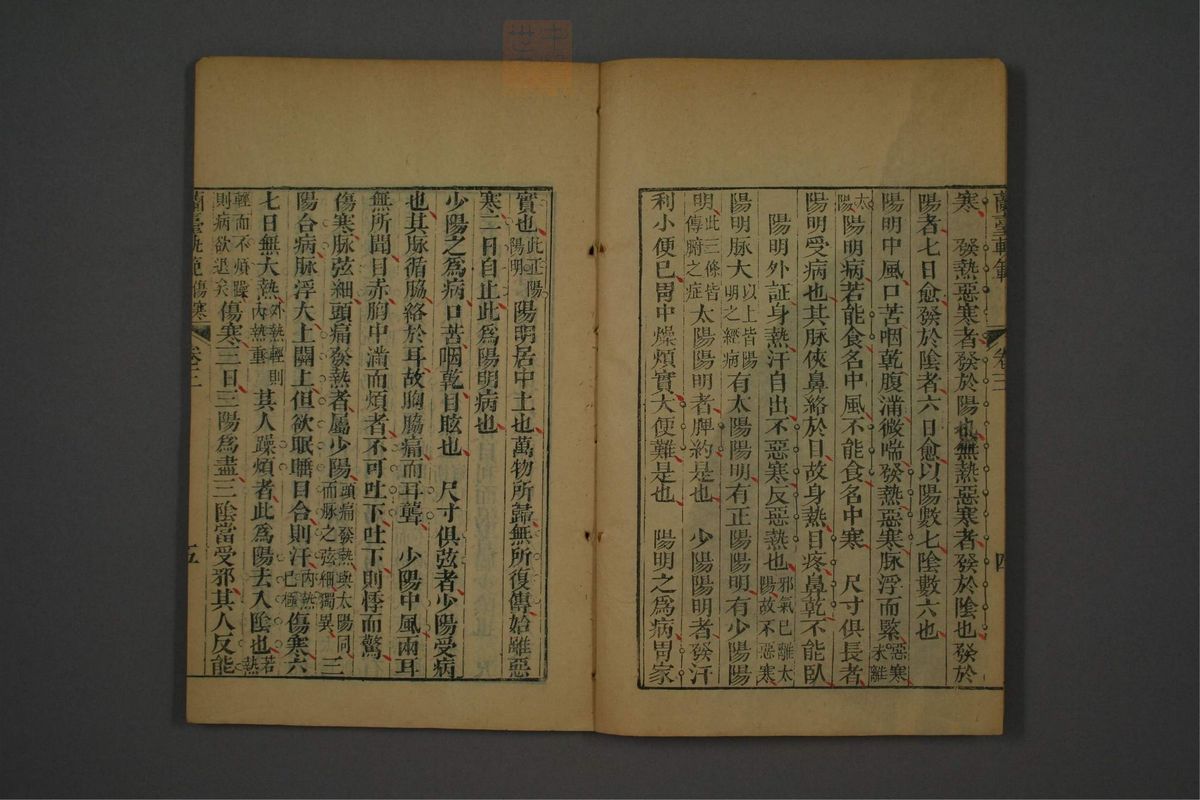 蘭臺軌範 卷三 四
寒 發熱惡寒者發於陽也無熱惡寒者發於陰也發於
陽者七日愈發於陰者六日愈以陽數七陰數六也
陽明中風口苦咽乾腹滿微喘發熱惡寒脈浮而緊惡寒未離
太陽陽明病若能食名中風不能食名中寒 尺寸俱長者
陽明受病也其脈俠鼻絡於目故身熱目疼鼻乾不能臥
陽明外証身熱汗自出不惡寒反惡熱也邪氣已離太陽故不惡寒
陽明脈大以上皆陽明之經病有太陽陽明有正陽陽明有少陽陽
明此三條皆傳腑之症太陽陽明者脾約是也 少陽陽明者發汗
利小便已胃中燥煩實大便難是也 陽明之為病胃家
實也此正陽陽明陽明居中土也萬物所歸無所復傳始雖惡
寒二日自止此為陽明病也
少陽之為病口苦咽乾目眩也 尺寸俱弦者少陽受病
也其脈循脇絡於耳故胸脇痛而耳聾 少陽中風兩耳
無所聞目赤胸中滿而煩者不可吐下吐下則悸而驚
傷寒脈弦細頭痛發熱者屬少陽頭痛發熱與太陽同而脈之弦細獨異 三
陽合病脈浮大上關上但欲眠睡目合則汗內熱已極傷寒六
七日無大熱外熱輕則內熱重 其人躁煩者此為陽去入陰也若熱
輕而不煩躁則病欲退矣傷寒三日三陽為盡三陰當受邪其人反能
蘭臺軌範 傷寒 卷三 五